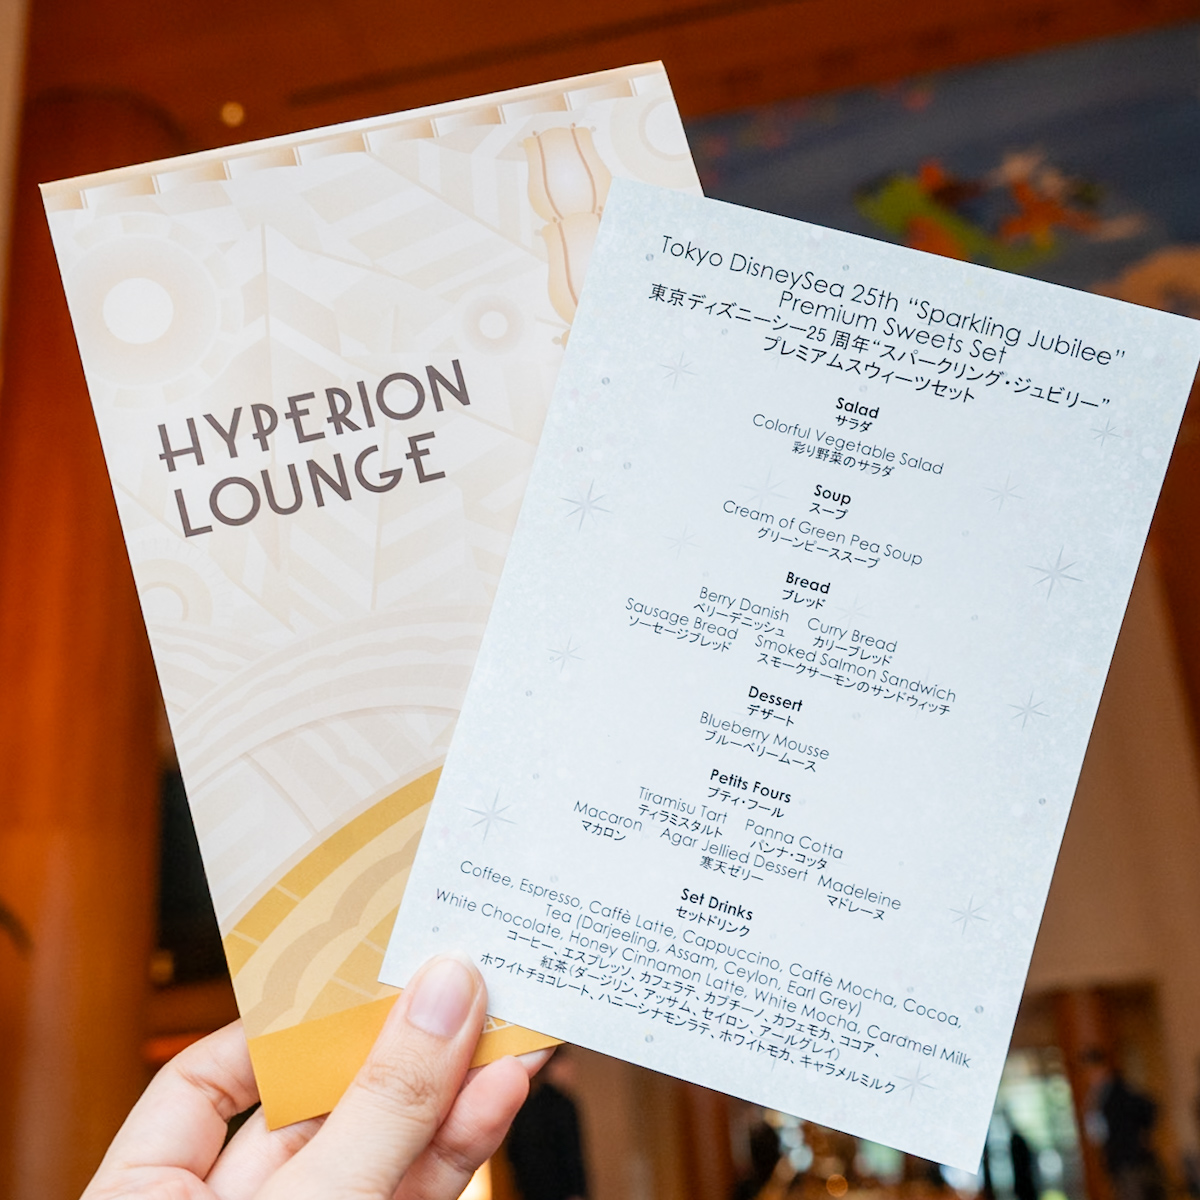 HYPERION
LOUNGE
Tokyo DisneySea 25th “Sparkling Jubilee”
Premium Sweets Set
東京ディズニーシー25 周年“スパークリング・ジュビリー”
プレミアムスウィーツセット
Salad
サラダ
Colorful Vegetable Salad
彩り野菜のサラダ
Soup
スープ
Cream of Green Pea Soup
グリーンピーススープ
Bread
ブレッド
Berry Danish Curry Bread
ベリーデニッシュ カリーブレッド
Sausage Bread Smoked Salmon Sandwich
ソーセージブレッド スモークサーモンのサンドウィッチ
Dessert
デザート
Blueberry Mousse
ブルーベリームース
Petits Fours
プティ・フール
Tiramisu Tart Panna Cotta
ティラミスタルト パンナ・コッタ
Macaron Agar Jellied Dessert Madeleine
マカロン 寒天ゼリー マドレーヌ
Set Drinks
セットドリンク
Coffee, Espresso, Caffè Latte, Cappuccino, Caffè Mocha, Cocoa,
Tea (Darjeeling, Assam, Ceylon, Earl Grey)
White Chocolate, Honey Cinnamon Latte, White Mocha, Caramel Milk
コーヒー、エスプレッソ、カフェラテ、カプチーノ、カフェモカ、ココア、
紅茶（ダージリン、アッサム、セイロン、アールグレイ）
ホワイトチョコレート、ハニーシナモンラテ、ホワイトモカ、キャラメルミルク